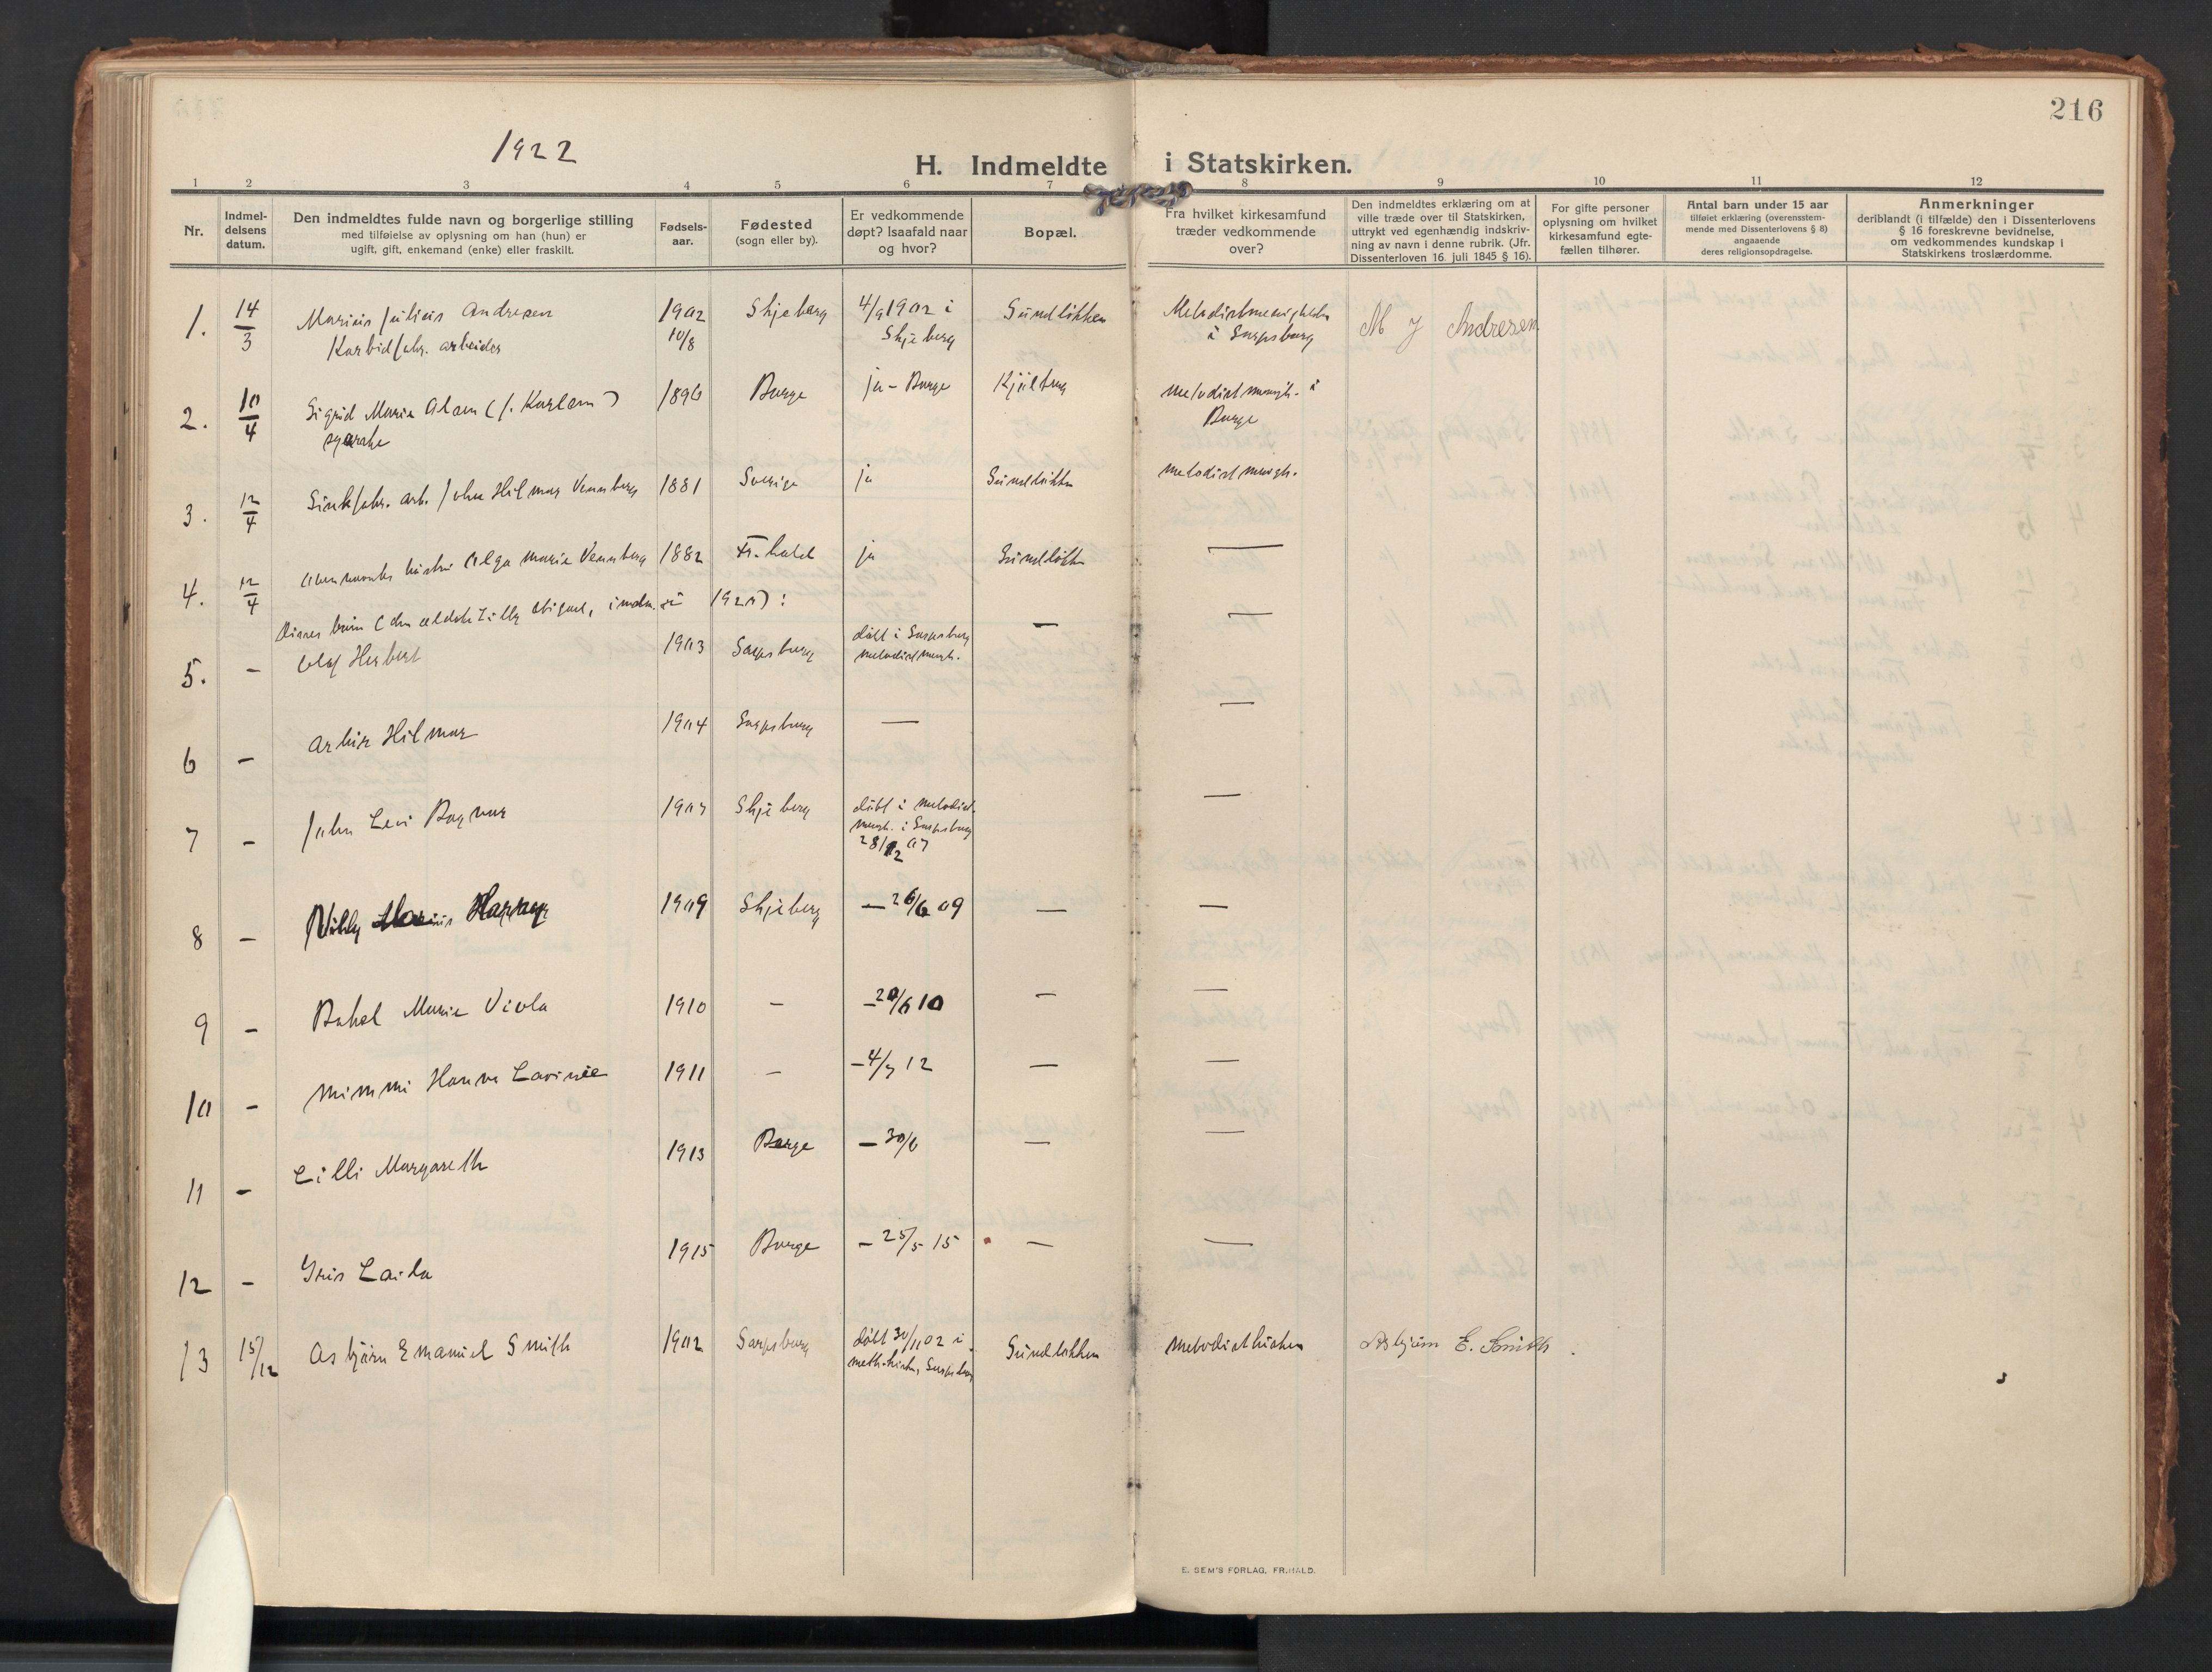 216
1922
H. Indmeldte i Statskirken.
1 2 3 4 5 6 7 8 9 10 11 12
Nr.
Indmel-
delsens
datum.
Den indmeldtes fulde navn og borgerlige stilling
med tilføielse av oplysning om han (hun) er
ugift, gift, enkemand (enke) eller fraskilt.
Fødsels-
aar.
Fødested
(sogn eller by).
Er vedkommende
døpt? Isaafald naar
og hvor?
Bopæl.
Fra hvilket kirkesamfund
træder vedkommende
over?
Den indmeldtes erklæring om at
ville træde over til Statskirken,
uttrykt ved egenhændig indskriv-
ning av navn i denne rubrik. (Jfr.
Dissenterloven 16. juli 1845 § 16).
For gifte personer
oplysning om hvilket
kirkesamfund egte-
fællen tilhører.
Antal barn under 15 aar
tilføiet erklæring (overensstem-
mende med Dissenterlovens § 8)
angaaende
deres religionsopdragelse.
Anmerkninger
deriblandt (i tilfælde) den i Dissenterlovens
§ 16 foreskrevne bevidnelse,
om vedkommendes kundskap i
Statskirkens troslærdomme.
1. 14/3 Marius Julius Andresen 1902 Skjeberg 4/9 1902 i Sundløkken Metodistmenigheden
Karbidfabr. arbeider 10/8 Skjeberg i Sarpsborg M J Andresen
2. 10/4 Sigrid Marie Olsen (f. Karlsen) 1896 Borge ja - Borge Kjølberg metodistmenigh. i
Borge
3. 12/4 Sinkfabr. arb. John Hilmar Vennberg 1881 Sverige ja Sundløkken metodistmenigh.
4. 12/4 Ovennævntes hustru Olga Marie Vennberg 1882 Fr.hald ja Sundløkken —
Disses børn (den ældste Lilly Abigael, indm. i 1920):
5. - Olaf Herbert 1903 Sarpsborg døbt i Sarpsborg — —
metodistmenigh.
6 - Arthur Hilmar 1904 Sarpsborg — —
7 - John Levi Ragnar 1907 Skjeberg døbt i metodist- —
menigh. i Sarpsborg
28/12 07
8 - Willy Harry 1909 Skjeberg — 26/6 09 — —
9 - Rakel Marie Viola 1910 - — 20/6 10 — —
10 - Mimmi Hanna Lavinie 1911 - — 4/7 12 — —
11 - Lilli Margareth 1913 Borge — 30/6 — —
12 - Iris Laila 1915 Borge — 25/5 15 — —
13 15/12 Asbjørn Emanuel Smith 1902 Sarpsborg døbt 30/11 02 i Sundløkken metodistkirken Asbjørn E. Smith.
meth.kirken, Sarpsborg
E. SEM'S FORLAG, FR.HALD.